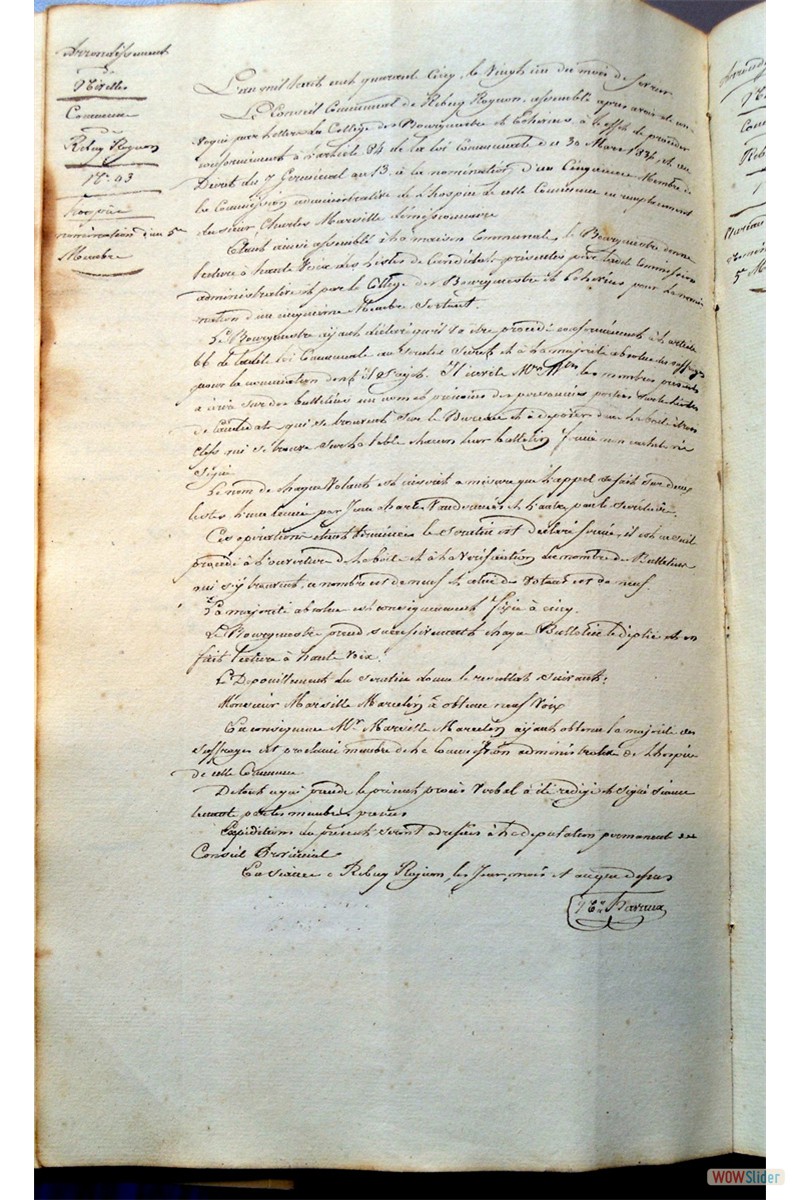 Arrondissement
de
Nivelles
Commune
de
Rebecq Rognon
N° 93
hospice
nomination d'un 5e
Membre
L'an mil huit cent quarante cinq, le vingt un du mois de fevrier
Le Conseil Communal de Rebecq Rognon, assemblé apres avoir été con
voqué par lettre du College des Bourgmestre et Echevins, a l'effet de proceder
conformement à l'article 84 de la loi Communale du 30 Mars 1836 et au
Decret du 7 Germinal an 13, à la nomination d'un Cinquieme Membre de
la Commission administrative de l'hospice de cette Commune en remplacement
du sieur Charles Marsille demissionnaire
Etant ainsi assemblé à la maison Communale, le Bourgmestre donne
lecture à haute voix des listes de Candidats présentés par ladite Commission
administrative et par le College des Bourgmestre et Echevins pour la nomi
nation d'un cinquieme Membre sortant.
Le Bourgmestre ayant declaré qu'il va être procedé conformement à l'article
66 de ladite loi Communale au Scrutin Secret et à la majorité absolue des suffrages
pour la nomination dont il s'agit. Il invite Mrs les membres presents
à écrire sur des bulletins un nom et prénoms des personnes portées sur les listes
de Candidats qui se trouvent sur le Bureau et à deposer dans la boite à trois
clefs qui se trouve sur la table chacun leur bulletin fermé non cacheté ni
Signé
Le nom de chaque Votant est inscrit a mesure que l'appel se fait sur deux
listes l'une tenue par Jean charles et l'autre par le secrétaire.
Ces opérations étant terminées le scrutin est declaré fermé, il est ensuite
procédé à l'ouverture de la boite et à la verification du nombre de Bulletins
qui s'y trouvent, ce nombre est de neuf et celui des votants est de neuf.
La majorité absolue est consequemment fixée à cinq.
Le Bourgmestre prend successivement chaque Bulletin le déplie et en
fait lecture à haute voix.
Le Depouillement du scrutin donne le resultat suivant:
Monsieur Marsille Marcelin à obtenu neuf Voix
En consequence Mr Marsille Marcelin ayant obtenu la majorité des
suffrages est proclamé membre de la Commission administrative de l'hospice
de cette Commune
De tout ce qui precede le présent procès Verbal a été redigé et signé séance
tenante par les membres présens
Expeditions du présent seront adressées à la deputation permanente du
Conseil Provincial
En séance à Rebecq Rognon, les Jour, mois et an que dessus
WOWSlider